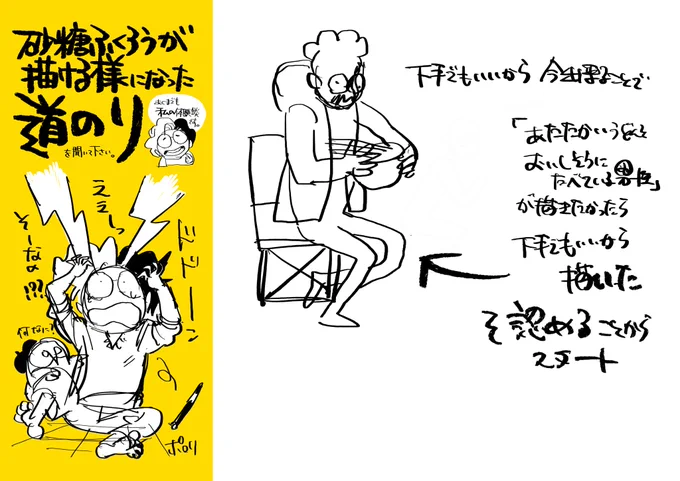 砂糖ふくろうが
描ける様になった
道のり
を聞いて下さい。
私の体験談
です。
ええーっ
そーなの!!?
ドドーン
何なに?
ポロリ
下手でもいいから 今出来ることで
「あたたかいうどんを
おいしそうに
たべている男性」
が描きたかったら
下手でもいいから
描いた
を認めることから
スタート